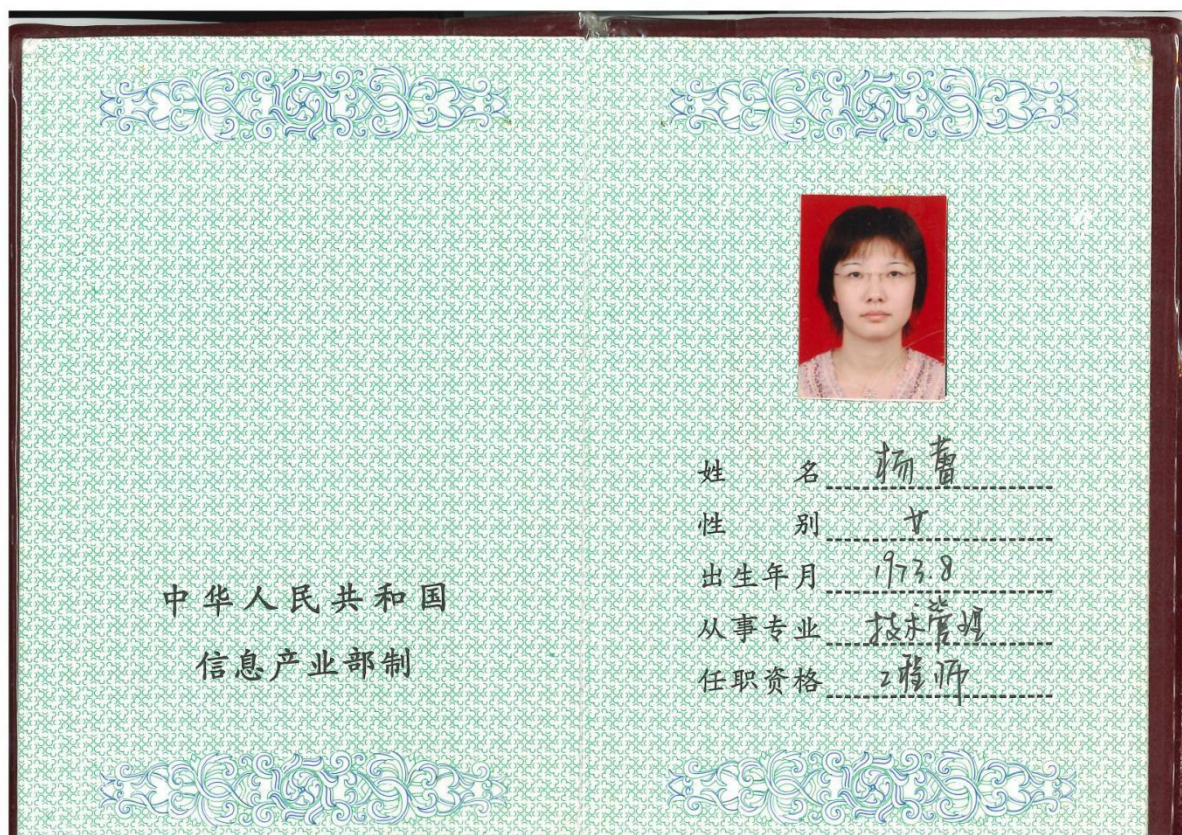 中华人民共和国
信息产业部制
姓 名 杨蕾
性 别 女
出生年月 1973.8
从事专业 技术管理
任职资格 工程师